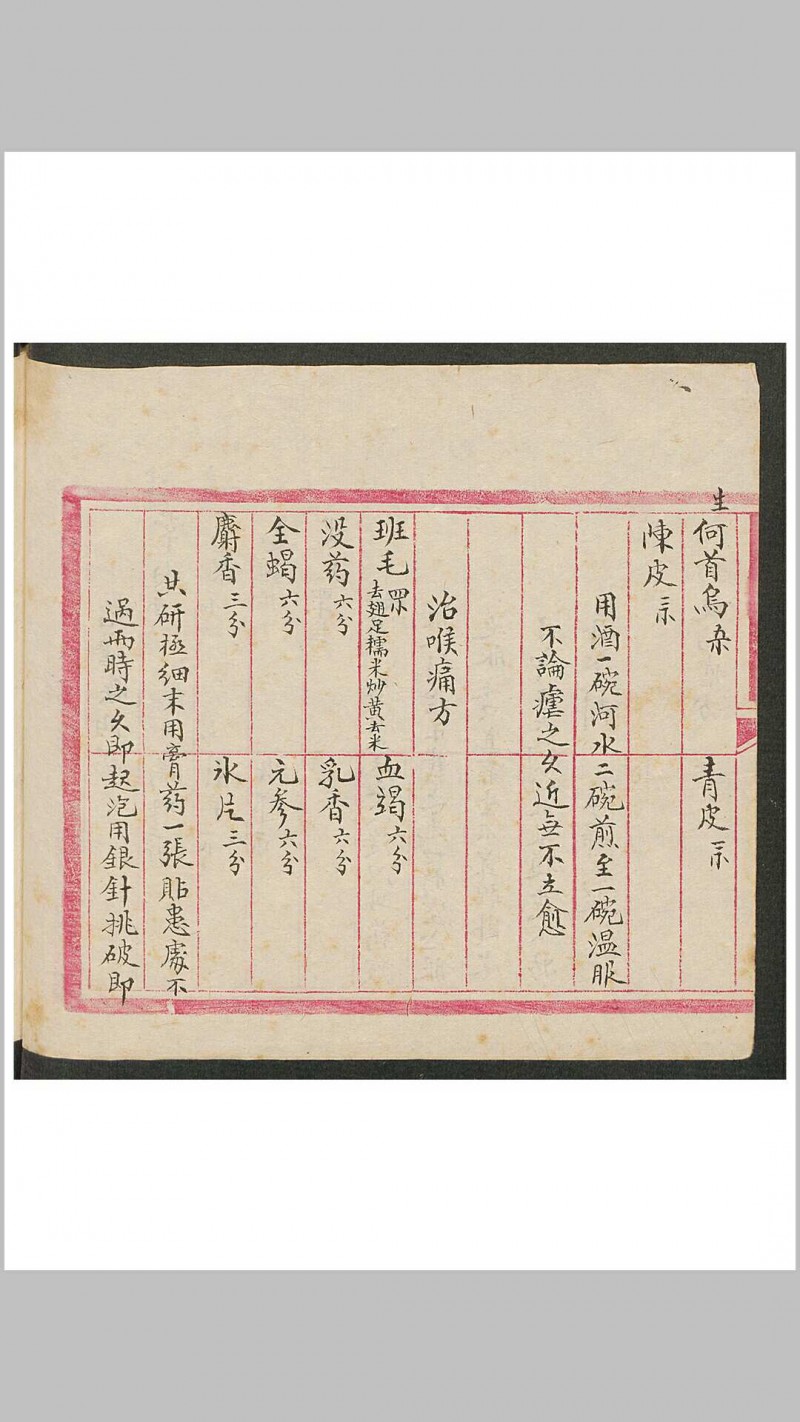 生何首烏 青皮
陳皮
用酒一碗河水二碗煎至一碗温服
不論瘧之久近無不立愈
治喉痛方
班毛 去翅足糯米炒黄去米 血竭六分
没药六分 乳香六分
全蝎六分 元参六分
麝香三分 氷片三分
共研極細末用膏药一張貼患處不
過両時之久即起泡用銀針挑破即